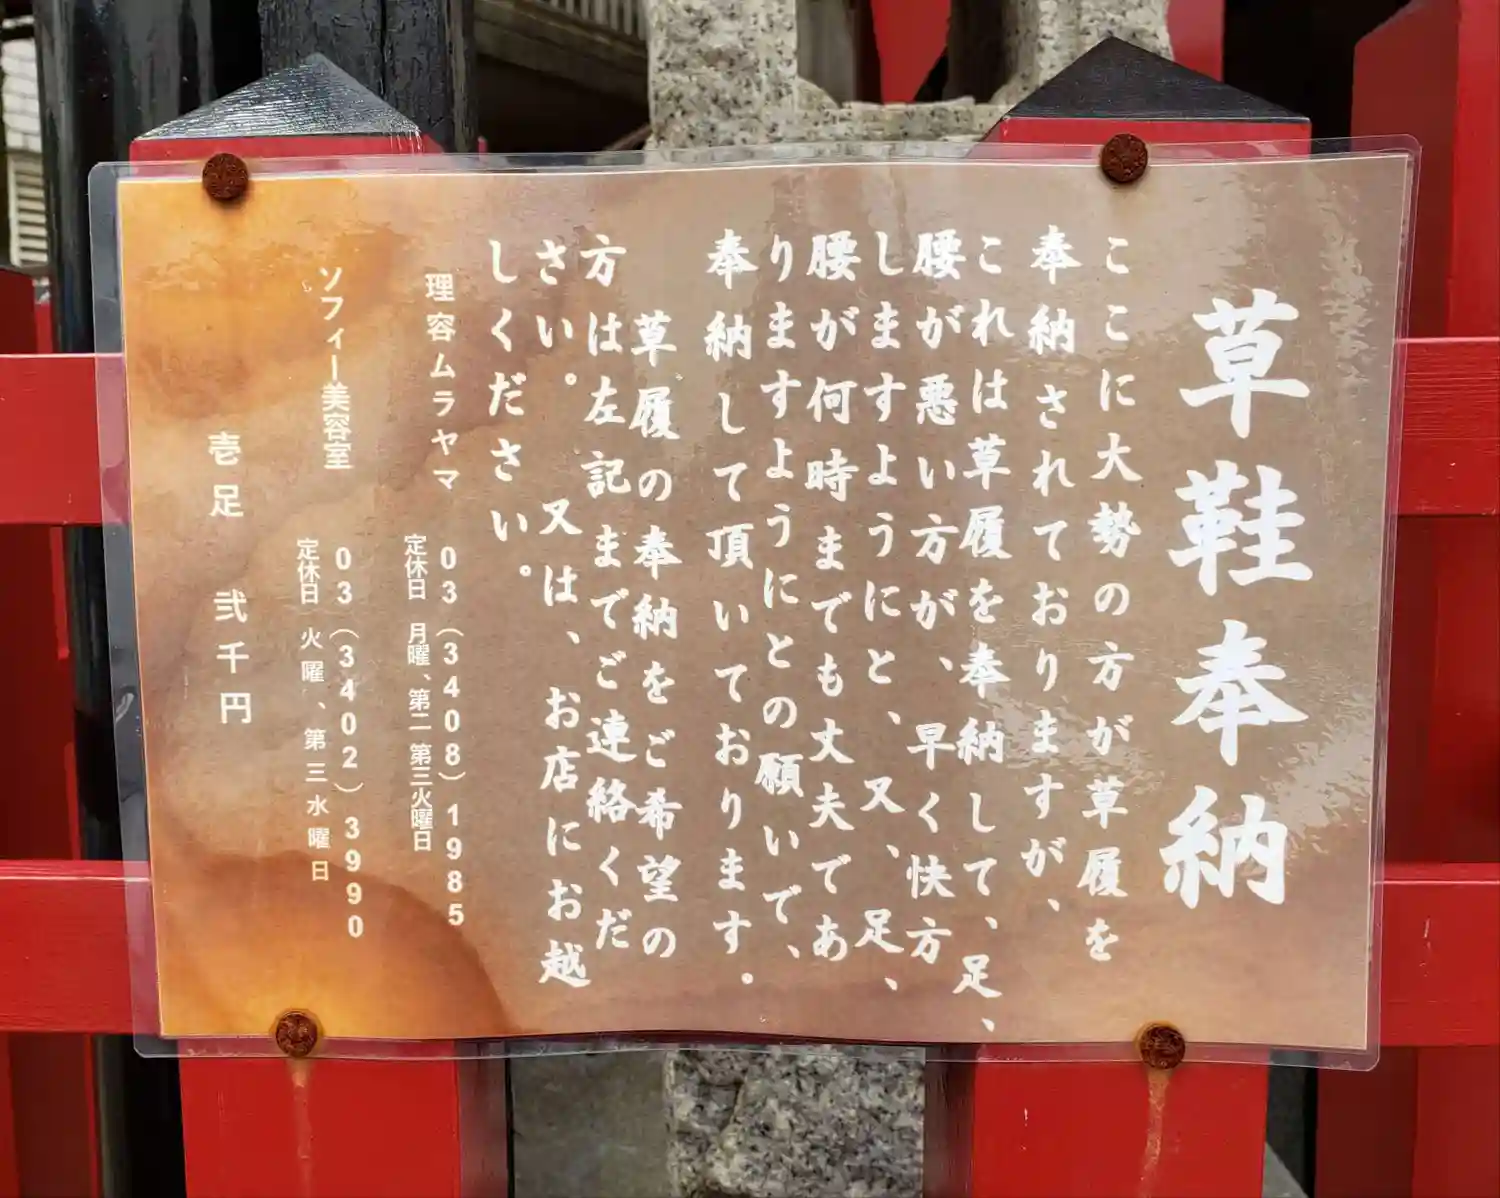 草鞋奉納
ここに大勢の方が草履を
奉納されておりますが、
これは草履を奉納して、足、
腰が悪い方が、早く快方
しますようにと、又、足、
腰が何時までも丈夫であ
りますようにとの願いで、
奉納して頂いております。
草履の奉納をご希望の
方は左記までご連絡くだ
さい。又は、お店にお越
しください。
理容ムラヤマ 03(3408)1985
定休日 月曜、第二 第三火曜日
ソフィー美容室 03(3402)3990
定休日 火曜、第三水曜日
壱足 弐千円